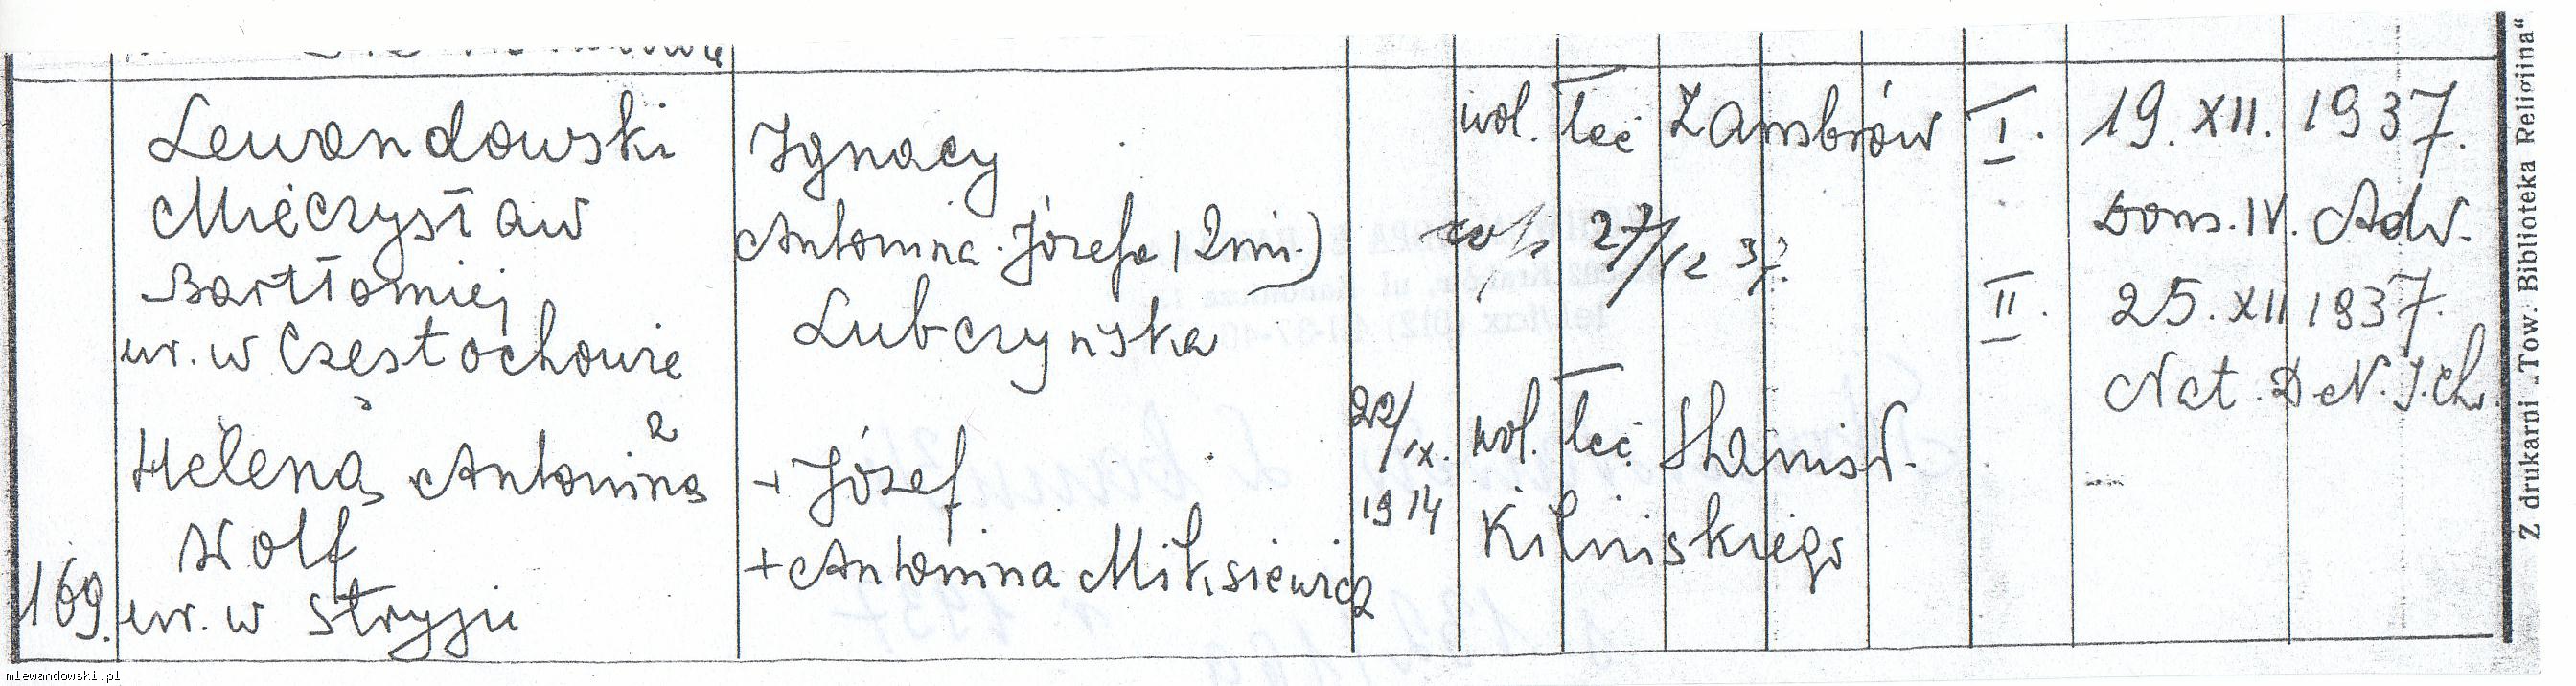 Lewandowski
Mieczysław
Bartłomiej
ur. w Częstochowie
Helena Antonina 2
Wolf
169. ur. w Stryju
Ignacy
Antonina Józefa (2 im.)
Lubczyńska
+ Józef
+ Antonina Miksiewicz
22/IX.
1914
wol. łac Zambrów
27/12 37.
wol. łac. Stanisł.
Kilińskiego
I. 19. XII. 1937.
Dom. IV. Adv.
II. 25. XII 1937.
Nat. D. N. J. Ch.
Z drukarni „Tow. Biblioteka Religijna"
mlewandowski.pl